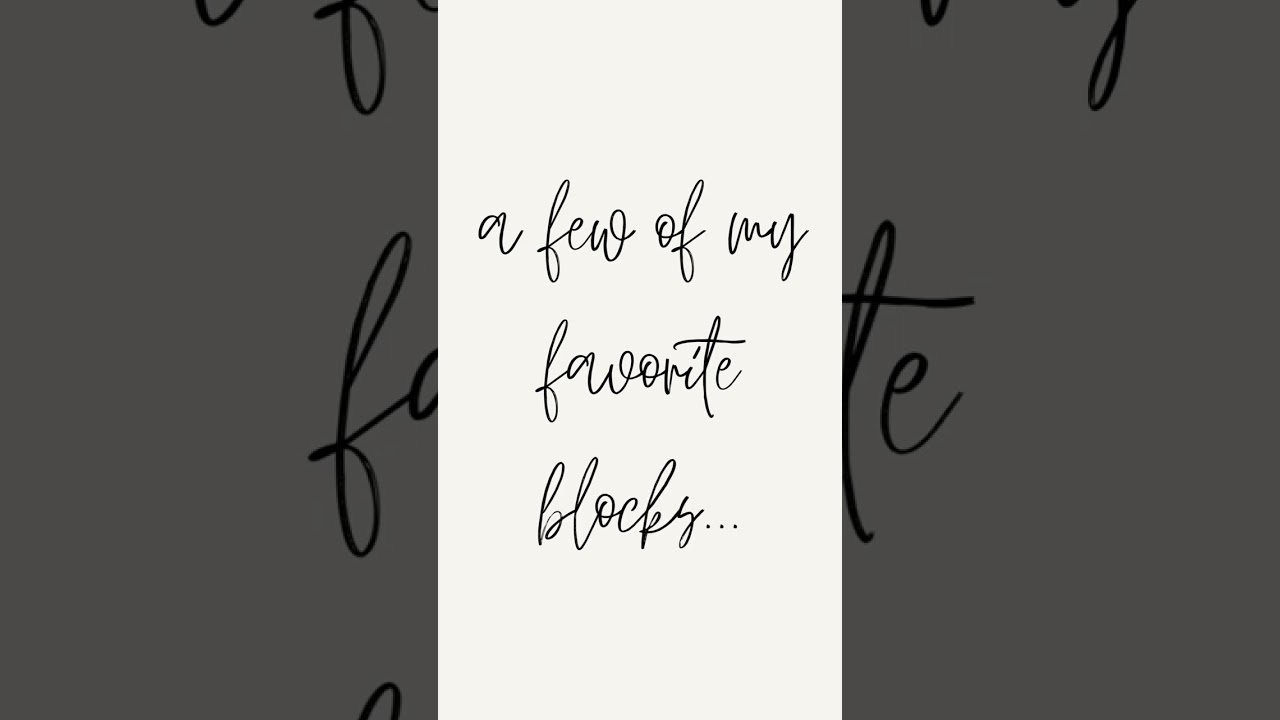 a few of my
favorite
blocks...